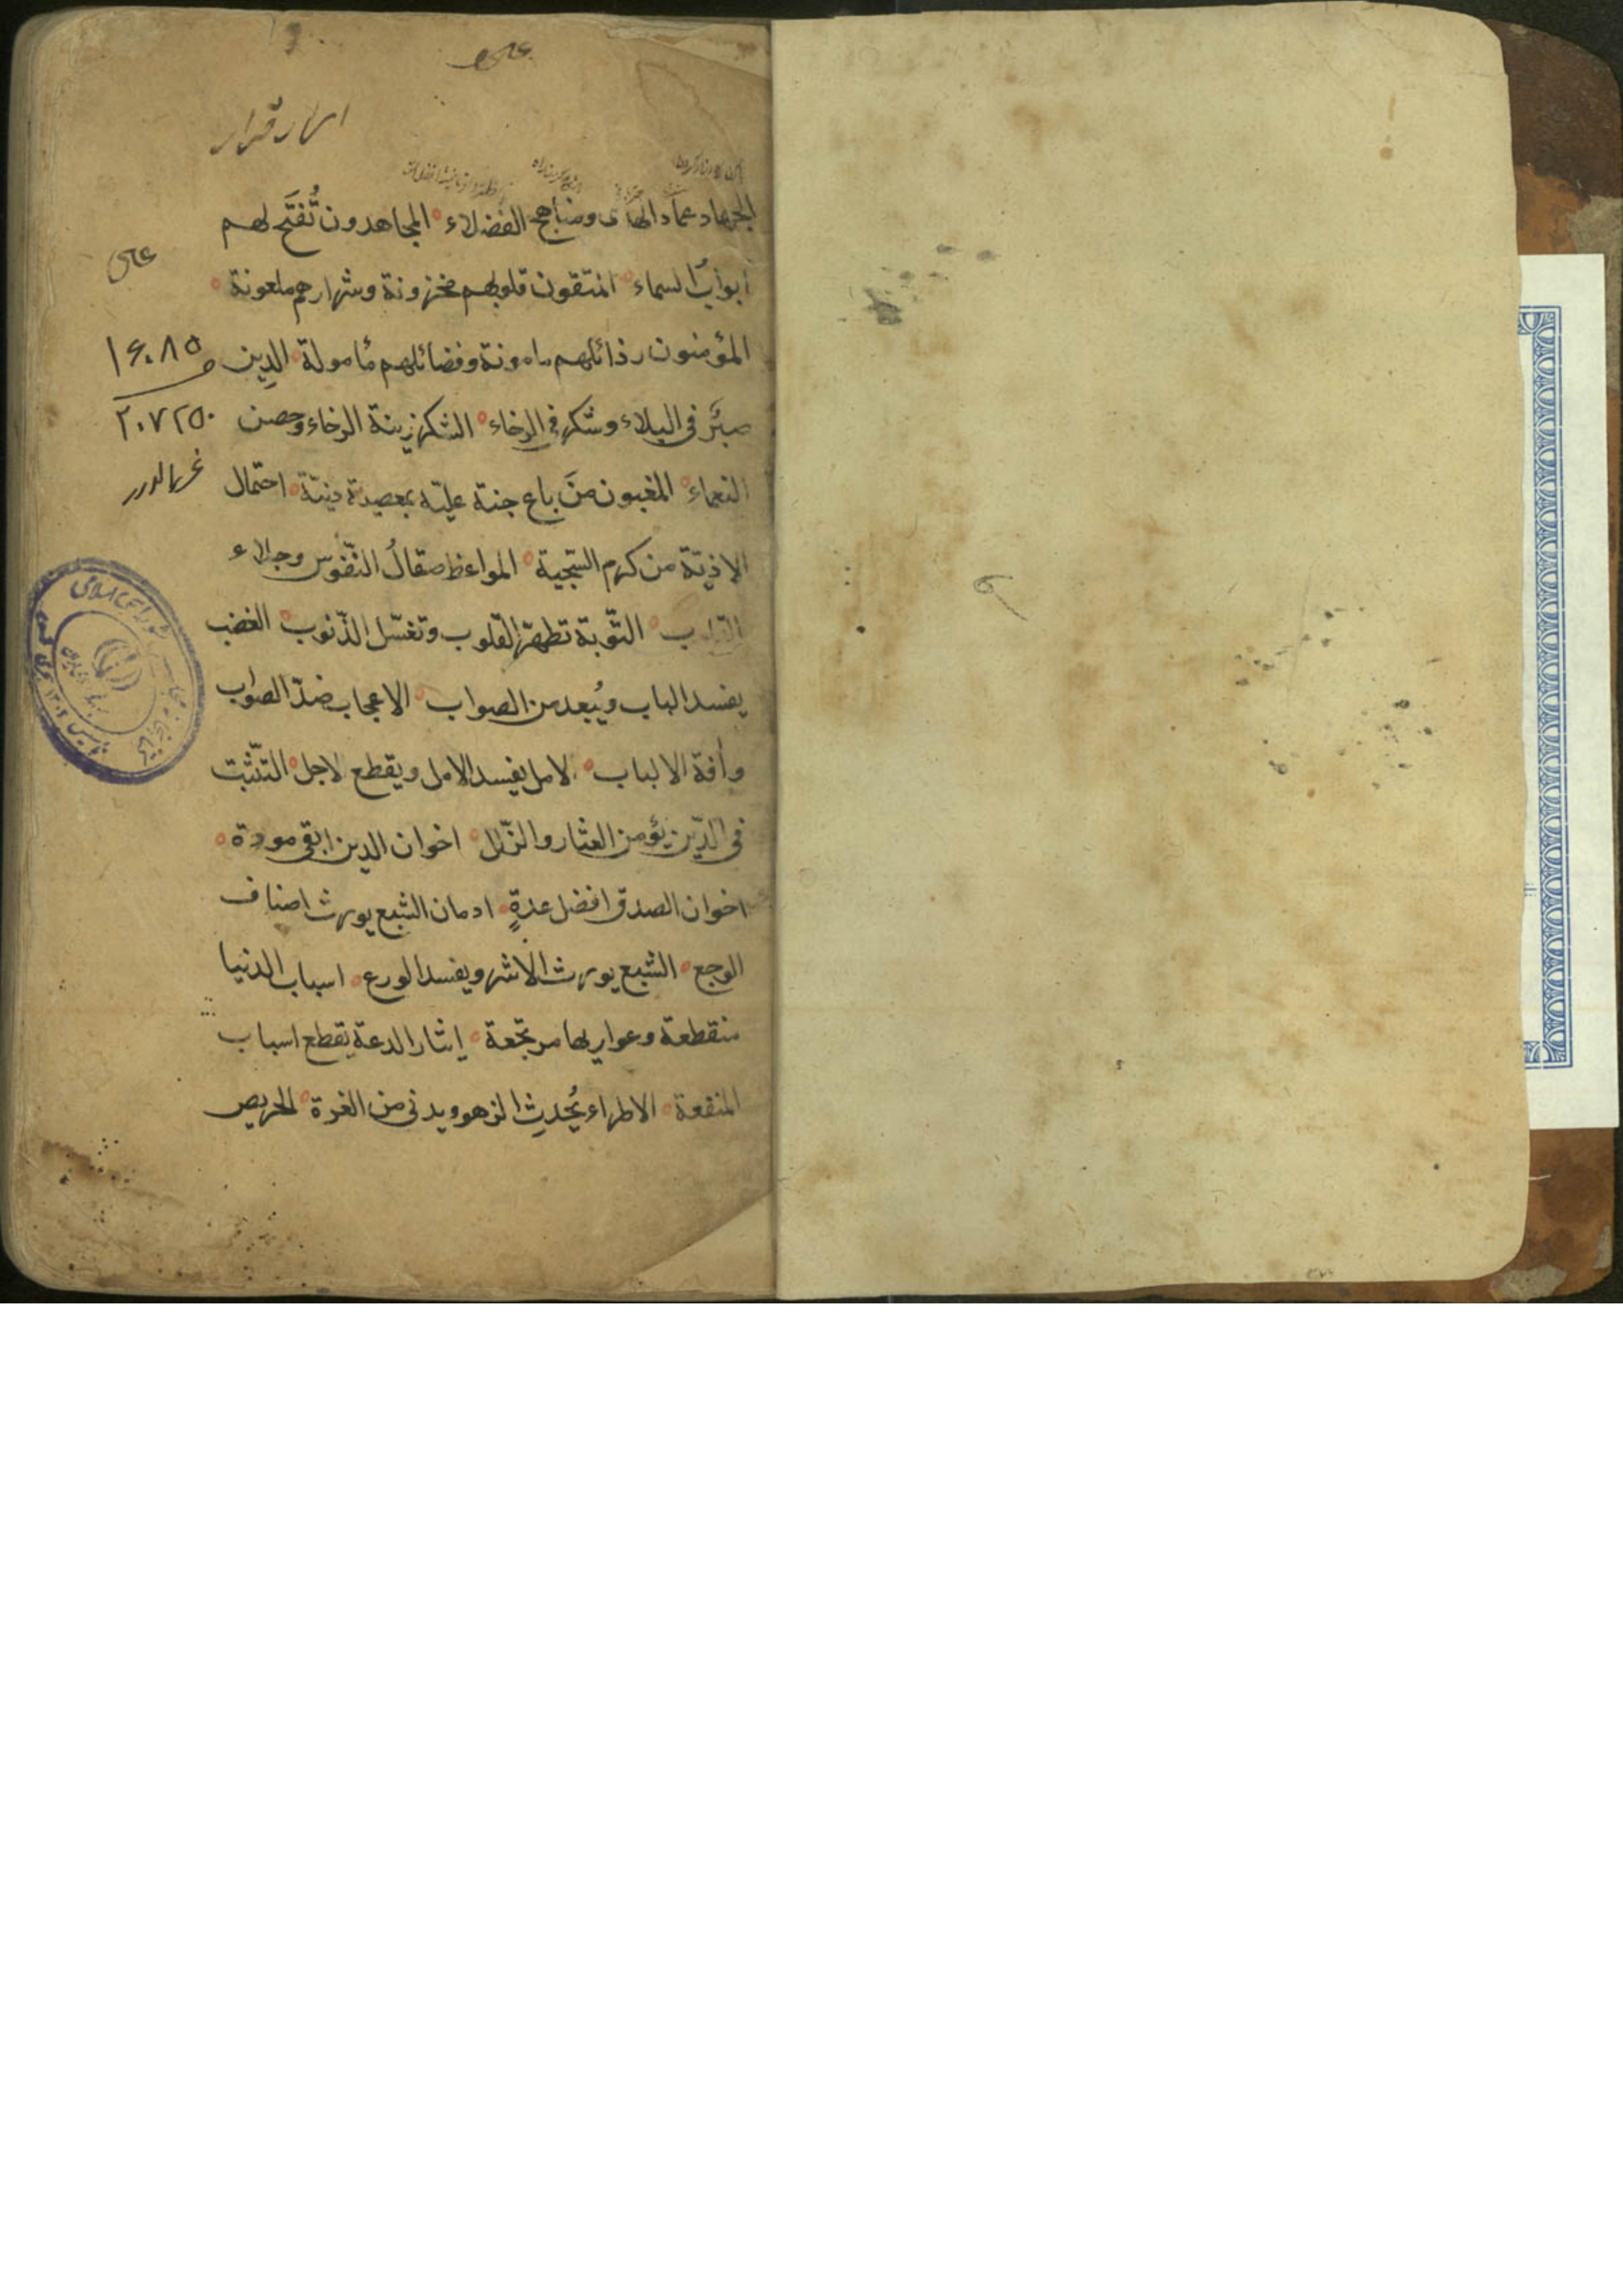 عکس
الجهاد عماد الهدى ومناهج الفضلاء المجاهدون تُفتَح لهم
ابوابُ السماء المتقون قلوبهم مخزونة وشرارهم ملعونة
المؤمنون رذائلهم مامونة وفضائلهم مامولة الدين
صبَر في البلاء وشكر في الرخاء الشكر زينة الرخاء وحصن
النعماء المغبون مَن باع جنة عليّه بمعصية دنيّة احتمال
الاذيّة من كرم السّجية المواعظ صقالُ النّفوس وجلاء
القلوب التّوبة تطهّر القلوب وتغسّل الذّنوب الغضب
يفسد الباب ويُبعد من الصواب الاعجاب ضدّ الصواب
وآفة الالباب الامل يفسد الامل ويقطع الاجل التّثبت
في الدّين يؤمن العثار والزّلل اخوان الدين ابقى مودة
اخوان الصدق افضل عدةٍ ادمان الشبع يورث اصناف
الوجع الشبع يورث الاشر ويفسد الورع اسباب الدنيا
منقطعة وعواريها مرتجعة إيثار الدعةِ يقطع اسباب
المنفعة الاطراء يُحدِث الزهو ويدنى من الغرة الحريص
عکس
۱۶۰۸۵
۲۰۷۲۵۰
غرر الدرر